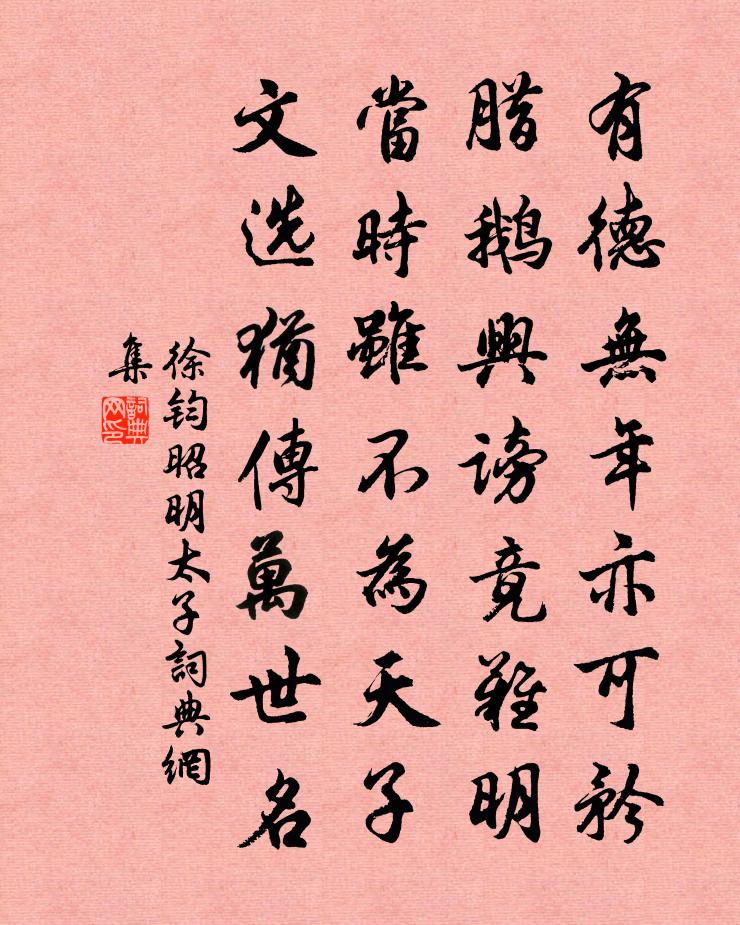 有德無年亦可矜
腊鹅興謗竟難明
當時雖不為天子
文选猶傳萬世名
徐钧昭明太子詞典網
集
詞典網印